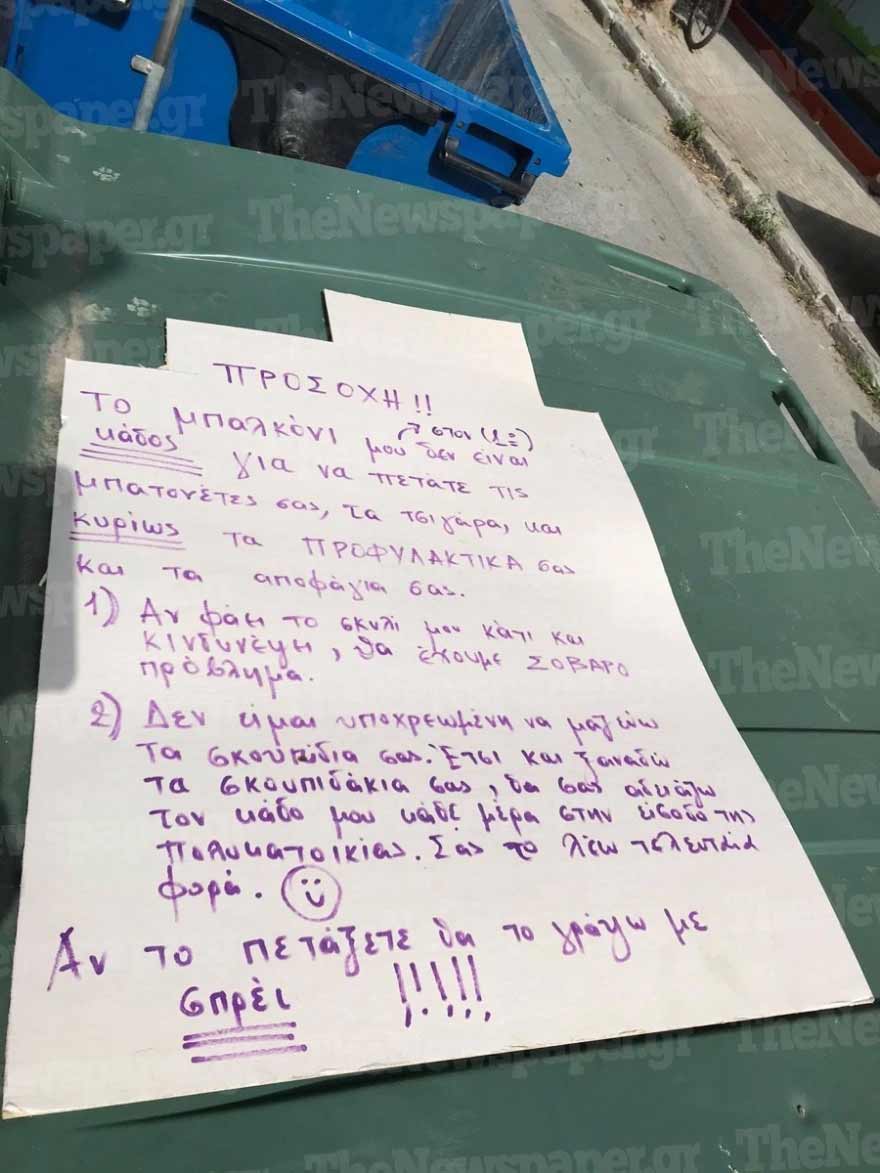 ΠΡΟΣΟΧΗ!!
Το μπαλκόνι μου δεν είναι
στον (1=)
κάδος για να πετάτε τις
μπατονέτες σας, τα τσιγάρα, και
κυρίως τα ΠΡΟΦΥΛΑΚΤΙΚΑ σας
και τα αποφάγια σας.
1) Αν φάει το σκυλί μου κάτι και
κινδυνέψει, θα έχουμε ΣΟΒΑΡΟ
πρόβλημα.
2) Δεν είμαι υποχρεωμένη να μαζεύω
τα σκουπίδια σας. Έτσι και ξαναδώ
τα σκουπιδάκια σας, θα σας αδειάζω
τον κάδο μου κάθε μέρα στην είσοδο της
πολυκατοικίας. Σας το λέω τελευταία
φορά.
Αν το πετάξετε θα το γράψω με
σπρέι !!!!!
TheNewspaper.gr